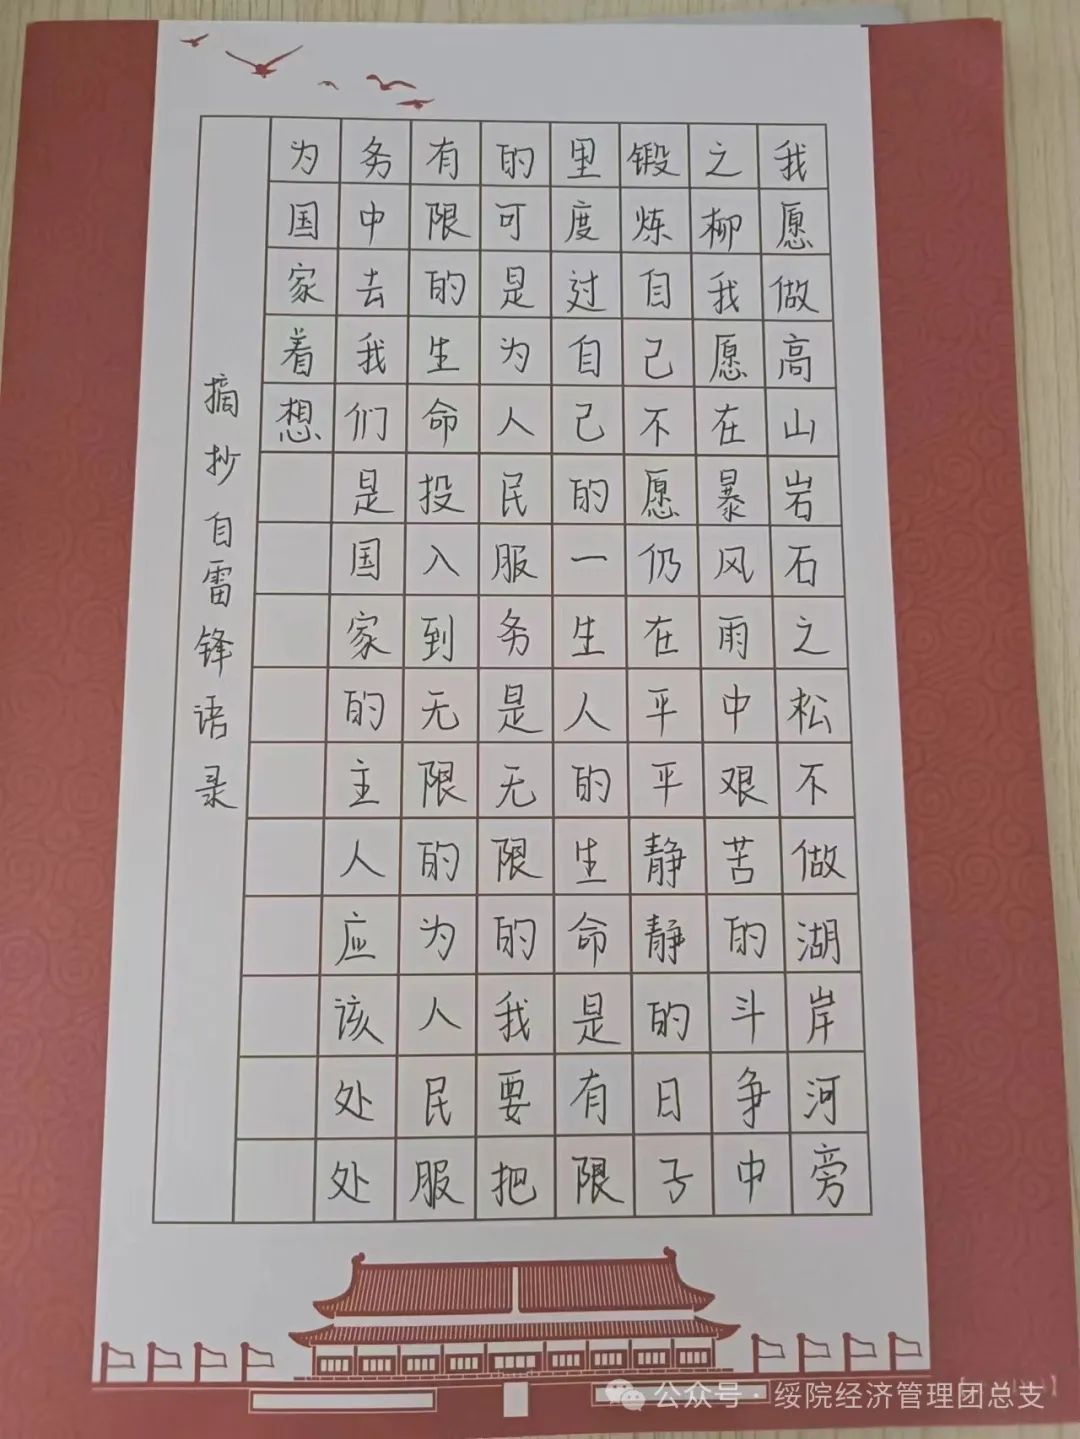 我愿做高山岩石之松不做湖岸河旁
之柳我愿在暴风雨中艰苦的斗争中
锻炼自己不愿仍在平平静静的日子
里度过自己的一生人的生命是有限
的可是为人民服务是无限的我要把
有限的生命投入到无限的为人民服
务中去我们是国家的主人应该处处
为国家着想
摘抄自雷锋语录
公众号·绥院经济管理团总支